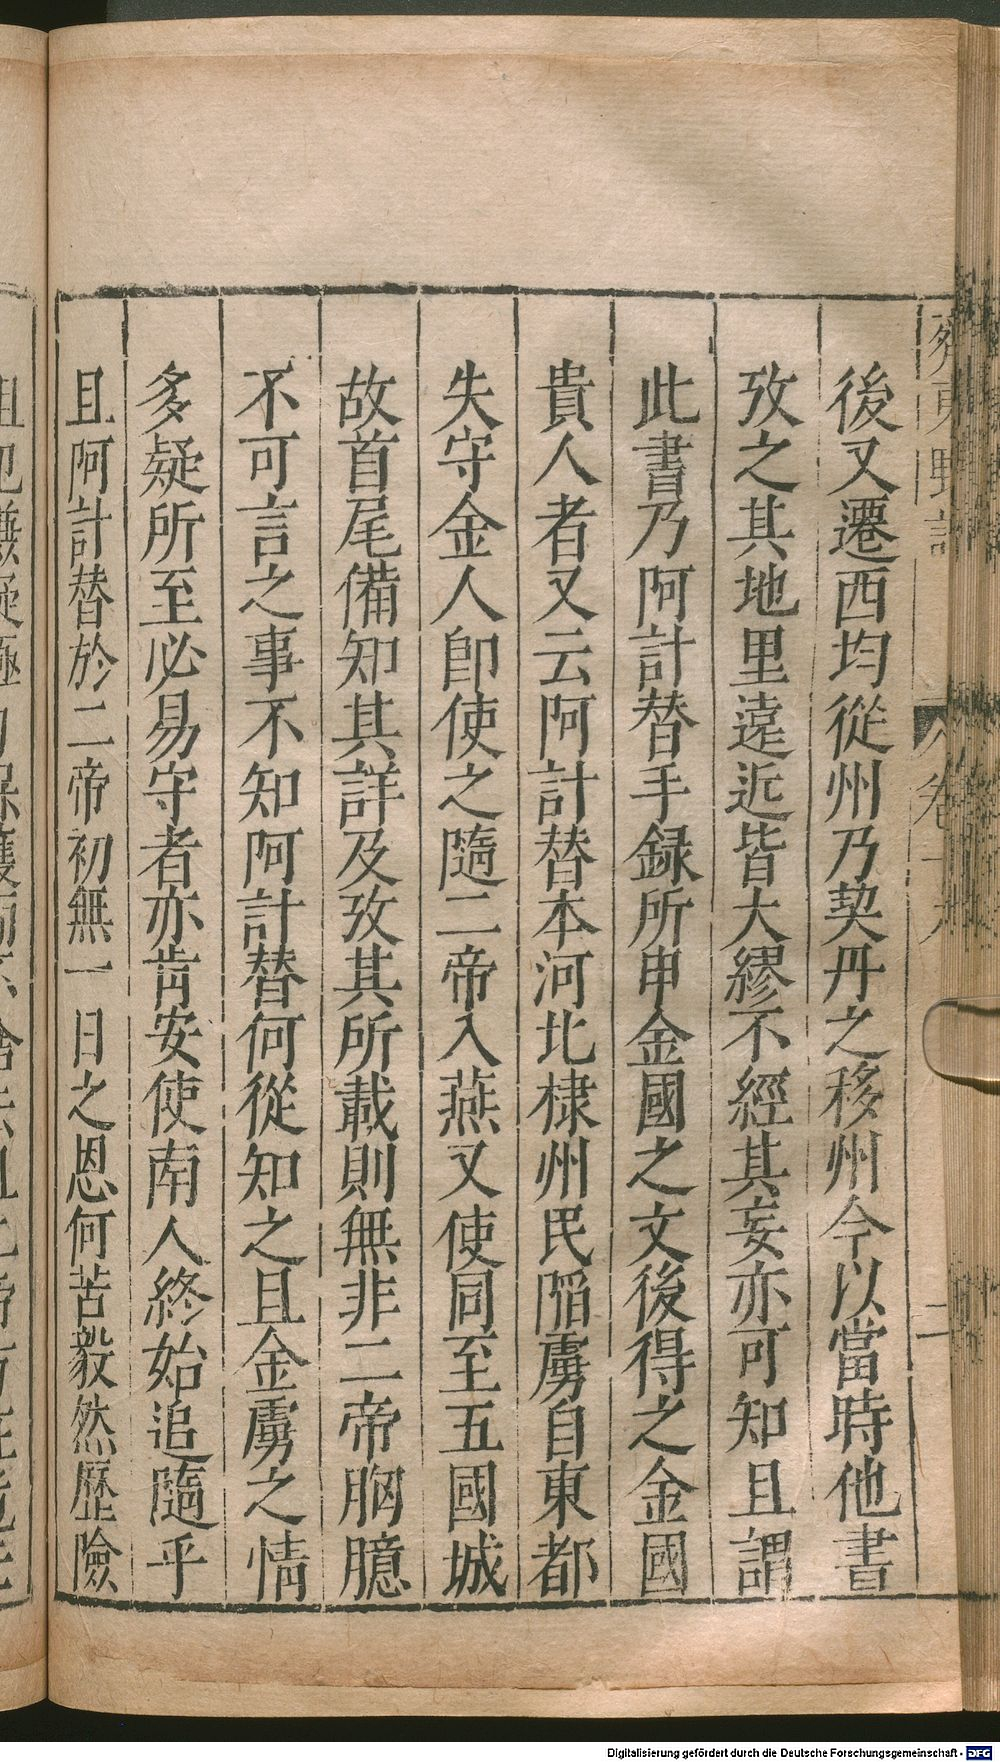 後又遷西均從州乃契丹之移州今以當時他書
攷之其地里遠近皆大繆不經其妄亦可知且謂
此書乃阿計替手録所申金國之文後得之金國
貴人者又云阿計替本河北棣州民陷虜自東都
失守金人卽使之隨二帝入燕又使同至五國城
故首尾備知其詳及攷其所載則無非二帝胸臆
不可言之事不知阿計替何從知之且金虜之情
多疑所至必易守者亦肯安使南人終始追隨乎
且阿計替於二帝初無一日之恩何苦毅然歷險
Digitalisierung gefördert durch die Deutsche Forschungsgemeinschaft - DFG